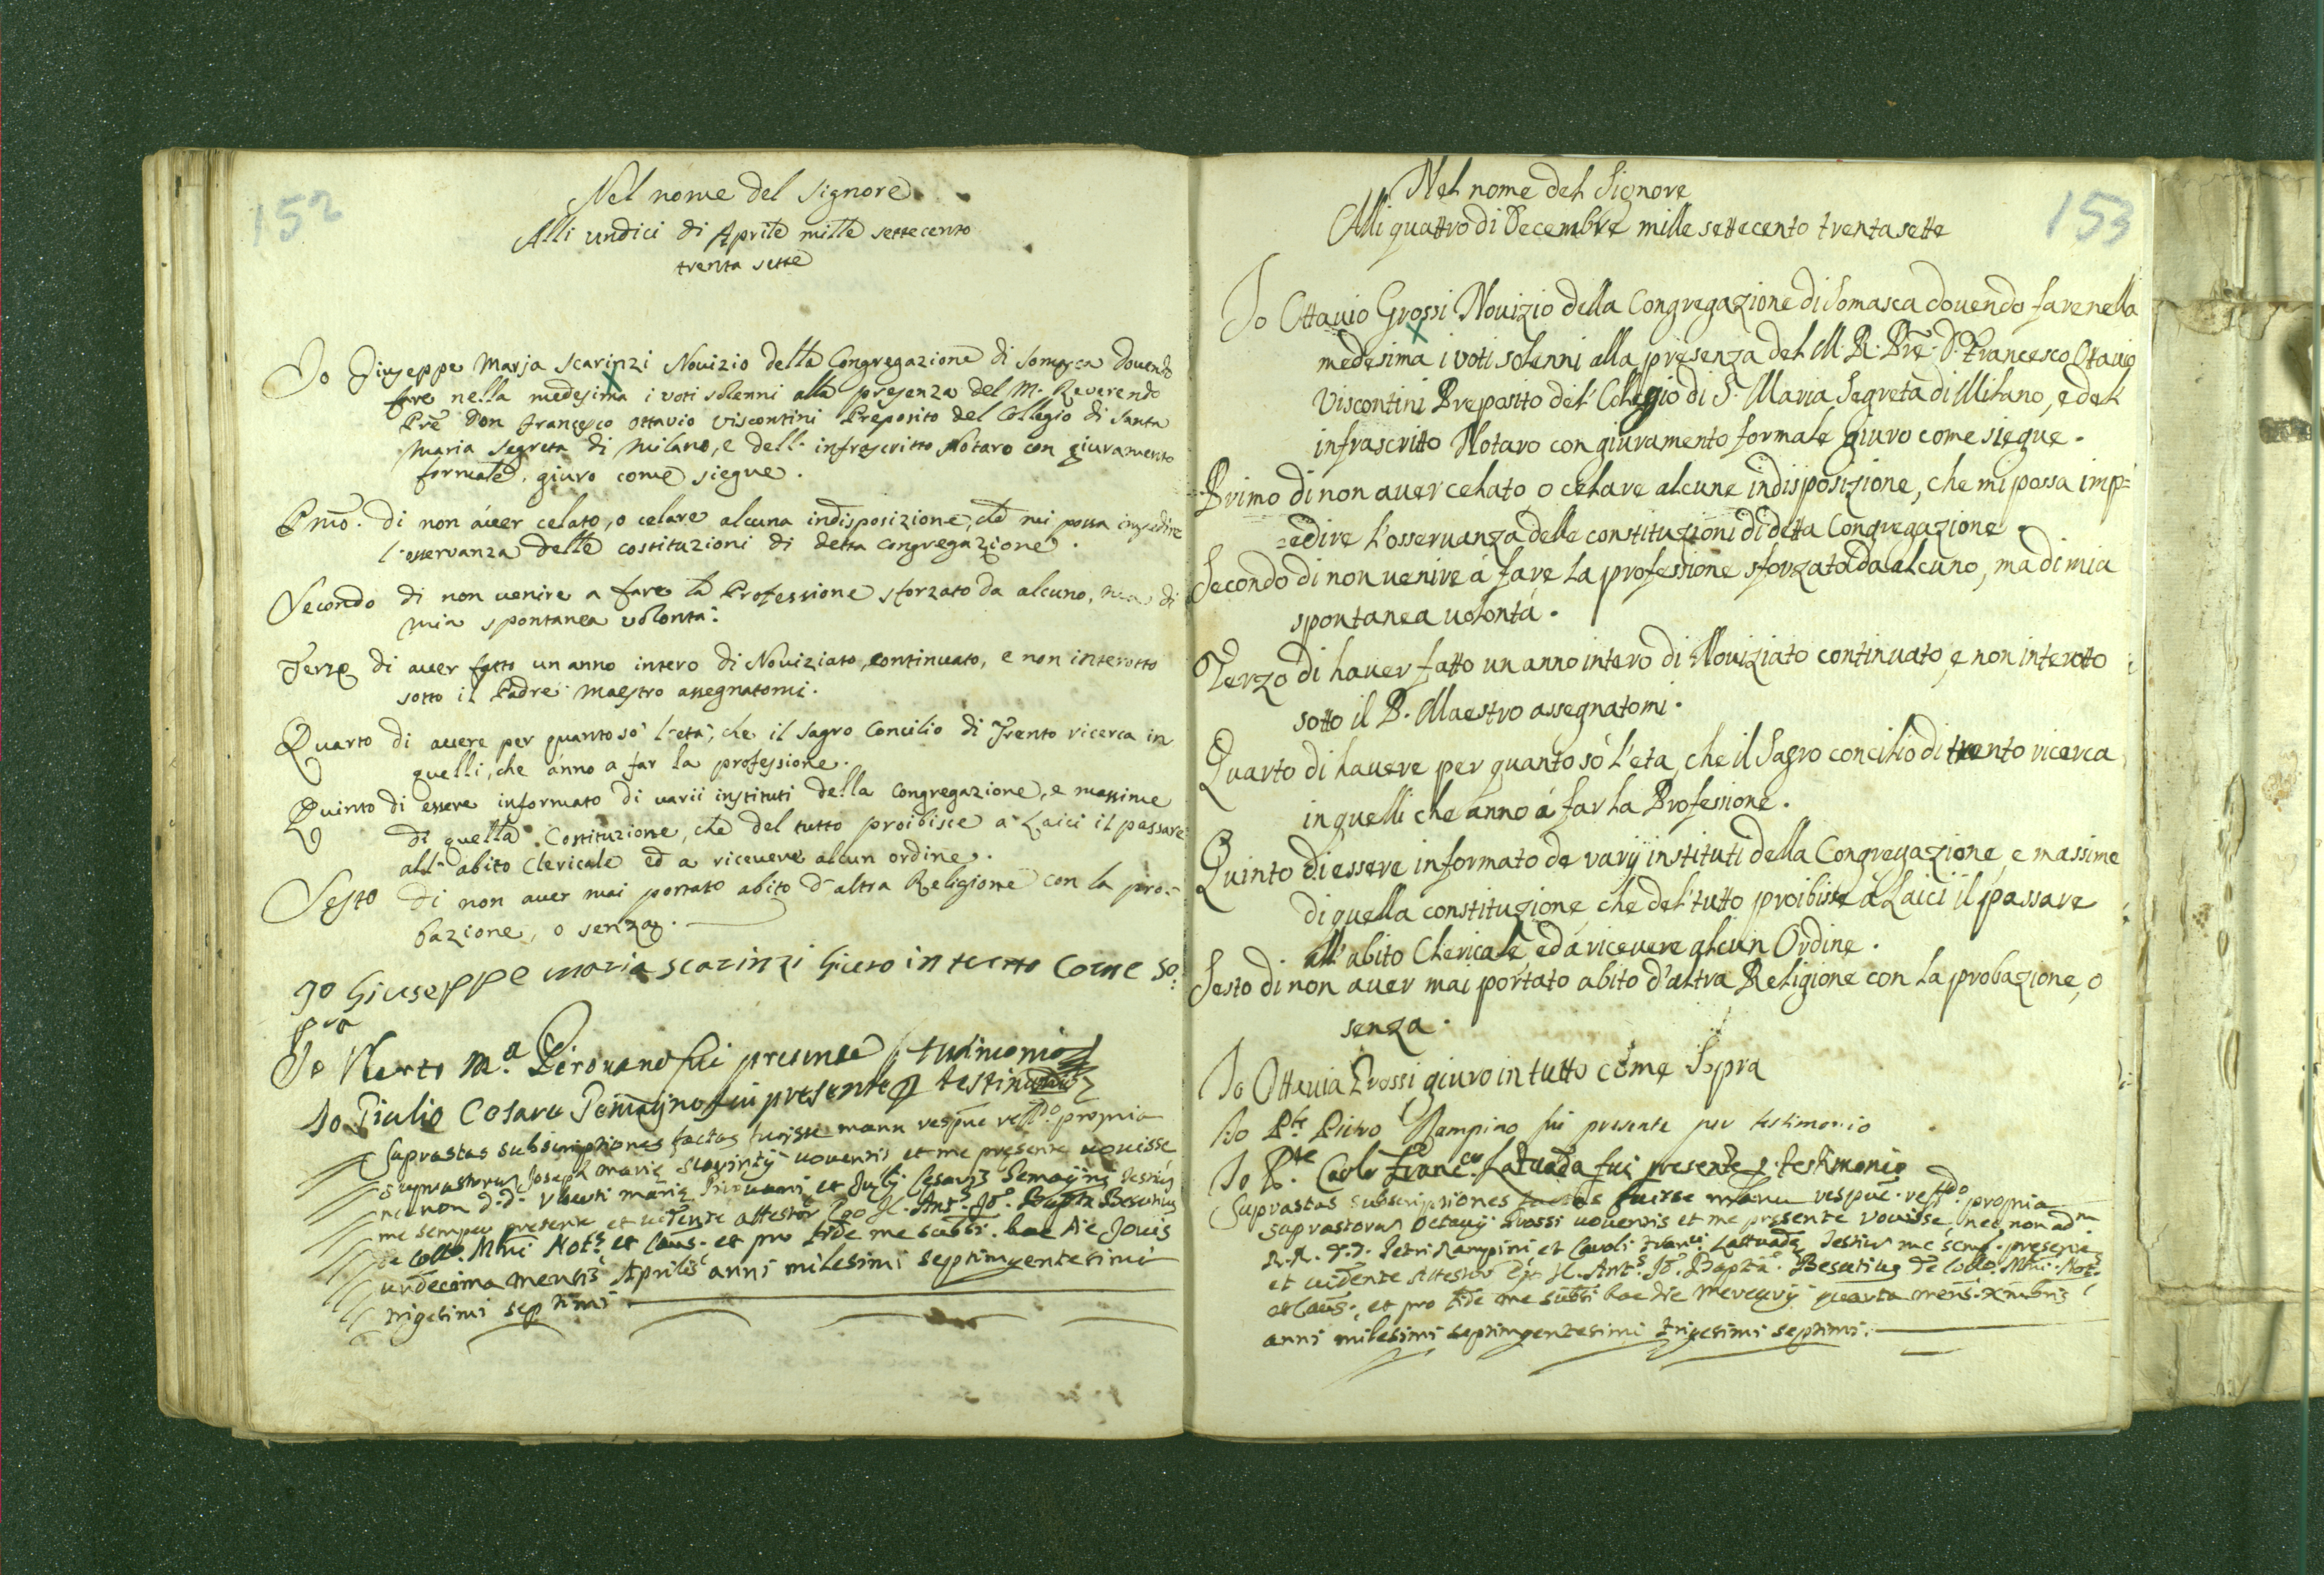 152
Nel nome del Signore
Alli undici di Aprile mille settecento
trenta sette
Io Giuseppe Maria Scarinzi Novizio della Congregazione di Somasca dovendo
fare nella medesima i voti solenni alla presenza del M. Reverendo
Prē Don Francesco Ottavio Viscontini Preposito del Collegio di Santa
Maria Segreta di Milano, e dell' infrascritto Notaro con giuramento
formale, giuro come siegue.
Pmō. di non aver celato, o celare alcuna indisposizione, che mi possa impedire
l'osservanza delle costituzioni di detta Congregazione.
Secondo di non venire a fare la Professione sforzato da alcuno, ma di
mia spontanea volontà.
Terzo di aver fatto un anno intero di Noviziato, continuato, e non interotto
sotto il Padre Maestro assegnatomi.
Quarto di avere per quanto sò l'età, che il Sagro Concilio di Trento ricerca in
quelli, che ànno a far la professione.
Quinto di essere informato di varii instituti della Congregazione, e massime
di quella Costituzione, che del tutto proibisce a' Laici il passare
all' abito Clericale ed a ricevere alcun ordine.
Sesto di non aver mai portato abito d'altra Religione con la pro-
bazione, o senza.
Io Giuseppe maria scarinzi Giuro in tutto Come so:
pra
Io Uberto M.a Pirovano fui presente p testimonio
Io Giulio Cesare Pemagno fui presente p testimonio
Suprastas subscriptiones factas fuisse manu respūe reſſ.do propria
suprastorum Joseph Marię Scarintij voventis et me presente vovisse
nec non d.d. Uberti Marię Pirovani, et Julij Cesaris Pemagni testium
me semper presente et vidente attestor Ego J.C. Ant.s Jō. Bapta Besutius
de Collo. Mlni Not.s et Caus. et pro fide me subsi. hac die Jovis
undecima mensis Aprilis anni milesimi septimgentesimi
trigesimi septimi
153
Nel nome del Signore
Alli quattro di Decembre mille settecento trentasette
Io Ottavio Grossi Novizio della Congregazione di Somasca dovendo fare nella
medesima i voti solenni alla presenza del M. R. Prē. D. Francesco Ottavio
Viscontini Preposito del' Collegio di S. Maria Segreta di Milano, e del
infrascritto Notaro con giuramento formale giuro come siegue.
Primo di non aver celato o celare alcune indisposizione, che mi possa imp=
=edire l'osservanza delle constituzioni di detta Congregazione.
Secondo di non venire à fare la professione sforzato da alcuno, ma di mia
spontanea volontà.
Terzo di haver fatto un anno intero di Noviziato continuato, e non interotto
sotto il P. Maestro assegnatomi.
Quarto di havere per quanto sò l'eta, che il Sagro concilio di trento ricerca
in quelli che anno à far la Professione.
Quinto di essere informato de varÿ instituti della Congregazione, e massime
di quella constituzione, che del' tutto proibisse à Laici il passare
all' abito Clericale, ed à ricevere alcun Ordine.
Sesto di non aver mai portato abito d'altra Religione con la probazione, o
senza.
Io Ottavia Grossi giuro in tutto come Sopra
Io P.te Pietro Rampino fui presente per testimonio
Io P.te Carlo Franc.co Latuada fui presente p testimonio
Suprastas subscriptiones factas fuisse manu respūe. reſſ.do propria
suprastorum Octavij Grossi voventis et me presente vovisse, nec non adm
R.R. D.D. Petri Rampini et Caroli Franci Lattuadę Testium me semp. presente
et vidente Attestor Ego J.C. Ant.s Jō. Bapta. Besutius de Collo. Mlni. Not.s
et Caus., et pro fide me subsi hac die Mercurij quarta mens. Xmbris
anni milesimi septimgentesimi trigesimi septimi.